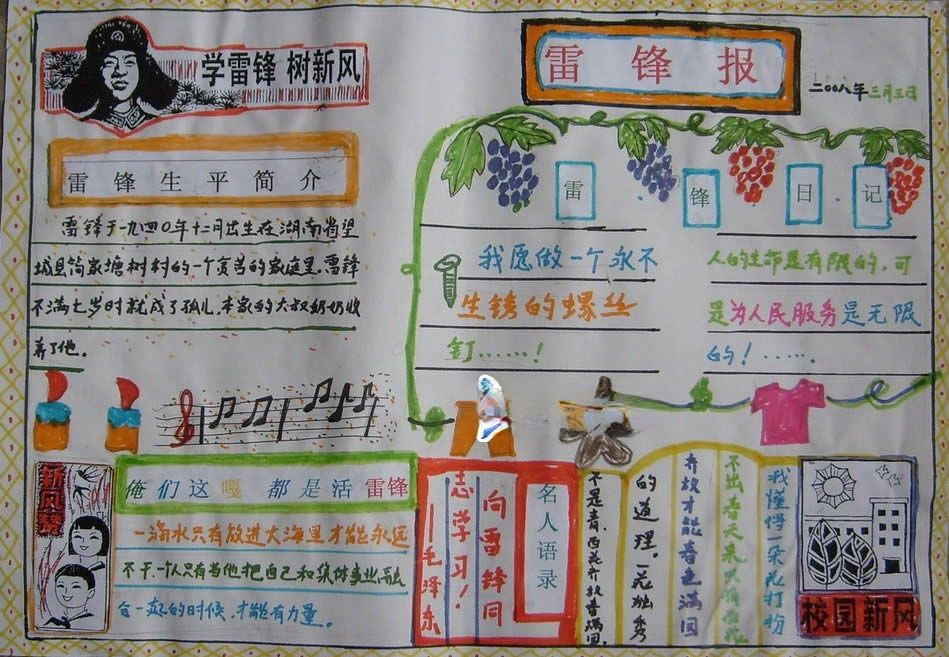 学雷锋 树新风
雷锋报
二00八年三月三日
雷锋生平简介
雷锋于一九四0年十二月出生在湖南省望
城县简家塘树村的一个贫苦的家庭里.雷锋
不满七岁时就成了孤儿,本家的六叔奶奶收
养了他.
雷锋日记
我愿做一个永不
生锈的螺丝
钉……!
人的生命是有限的,可
是为人民服务是无限
的!……
新风赞
俺们这嘎都是活雷锋
一滴水只有放进大海里才能永远
不干.一个人只有当他把自己和集体事业融
合一起的时候,才能有力量.
名人语录
向雷锋同
志学习!
——毛泽东
我懂得一朵花打扮
不出春天来只有百花
齐放才能春色满园
的道理.一花独秀
不是春,百花齐放春满园.
校园新风